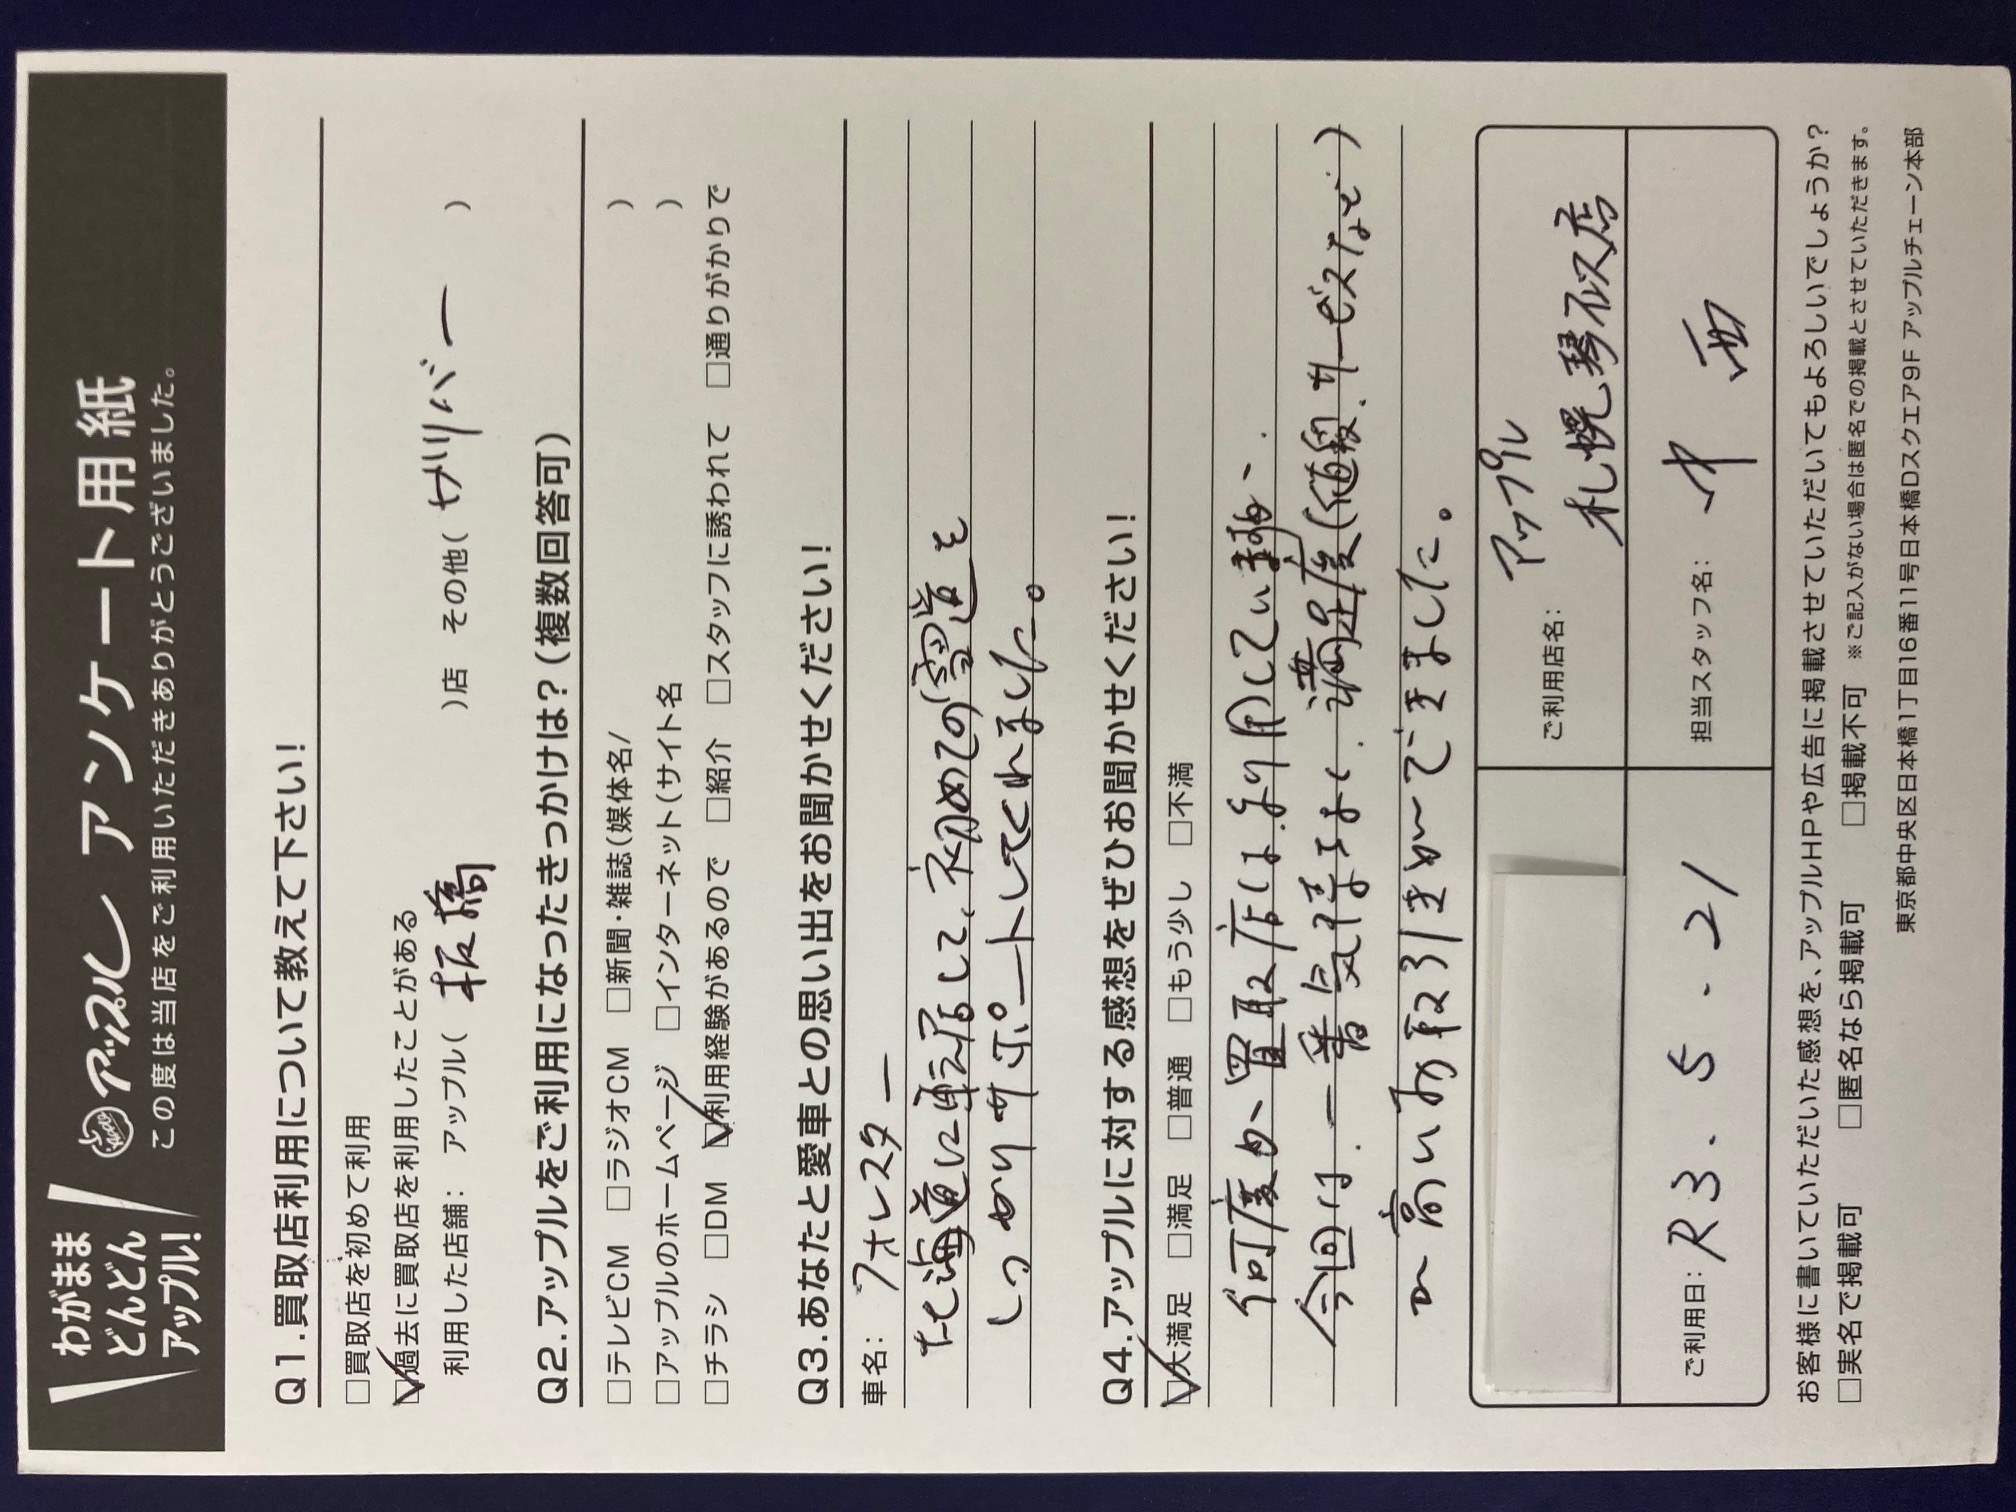 わがまま
どんどん
アップル!
アップル アンケート用紙
この度は当店をご利用いただきありがとうございました。
Q1.買取店利用について教えて下さい!
□買取店を初めて利用
☑過去に買取店を利用したことがある
利用した店舗: アップル( 板橋 )店 その他( ガリバー )
Q2.アップルをご利用になったきっかけは?(複数回答可)
□テレビCM □ラジオCM □新聞・雑誌(媒体名/ )
□アップルのホームページ □インターネット(サイト名 )
□チラシ □DM ☑利用経験があるので □紹介 □スタッフに誘われて □通りがかりで
Q3.あなたと愛車との思い出をお聞かせください!
車名: フォレスター
北海道に転居して、初めての雪道を
しっかりサポートしてくれました。
Q4.アップルに対する感想をぜひお聞かせください!
☑大満足 □満足 □普通 □もう少し □不満
何度か、買取店は利用しているが、
今回は、一番気持よく、満足度(値段、サービスなど)
の高いお取引きができました。
ご利用店名: アップル
札幌琴似店
ご利用日: R3.5.21
担当スタッフ名: 中西
お客様に書いていただいた感想を、アップルHPや広告に掲載させていただいてもよろしいでしょうか?
□実名で掲載可 □匿名なら掲載可 □掲載不可 ※ご記入がない場合は匿名での掲載とさせていただきます。
東京都中央区日本橋1丁目16番11号日本橋Dスクエア9F アップルチェーン本部